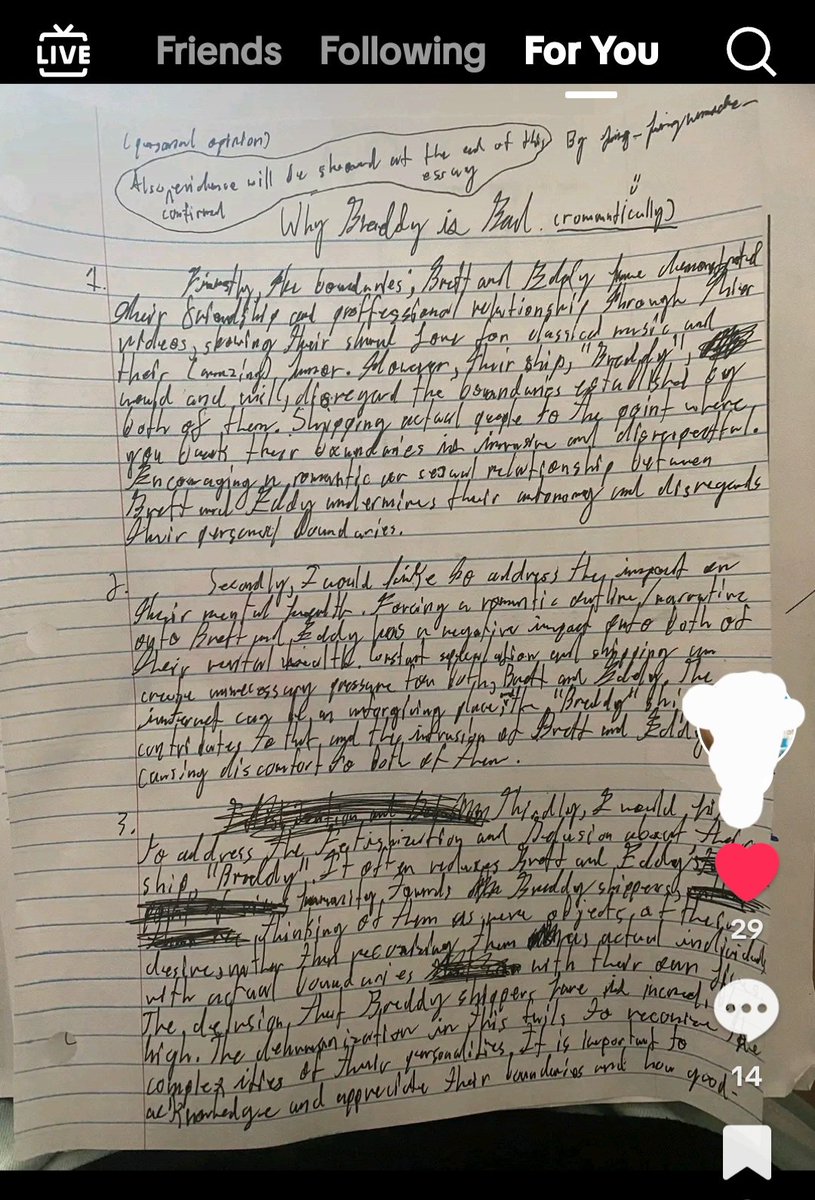 LIVE Friends Following For You
(personal opinion)
Also, evidence will be showed at the end of this
confirmed essay
By
Why Breddy is Bad. (romantically)
1. Firstly, the boundaries; Brett and Eddy have demonstrated
their friendship and proffessional relationship through thier
videos, showing their shared love for classical music and
their (amazing) humor. However, their ship, "Breddy",
would and will, disregard the boundaries established by
both of them. Shipping actual people to the point where
you break their boundaries is invasive and disrespectful.
Encouraging a romantic or sexual relationship between
Brett and Eddy undermines their autonomy and disregards
their personal boundaries.
2. Secondly, I would like to address the impact on
their mental health. Forcing a romantic narrative
onto Brett and Eddy has a negative impact onto both of
their mental health. Constant speculation and shipping can
create unnecessary pressure for both, Brett and Eddy. The
internet can be an unforgiving place, "Breddy"
contributes to that and the intrusion of Brett and
causing discomfort to both of them.
3. Thirdly, I would
to address the Fetishization and Delusion about
ship, "Breddy". It often reduces Brett and Eddy's
humanity towards Breddy shippers,
thinking of them as mere objects of
desire, rather than them as actual individuals
with actual boundaries with their own
The delusion that Breddy shippers have is
high. The dehumanization in this fails to the
complexities of their personalities. It is important to
acknowledge and appreciate their boundaries and how good-
29
14